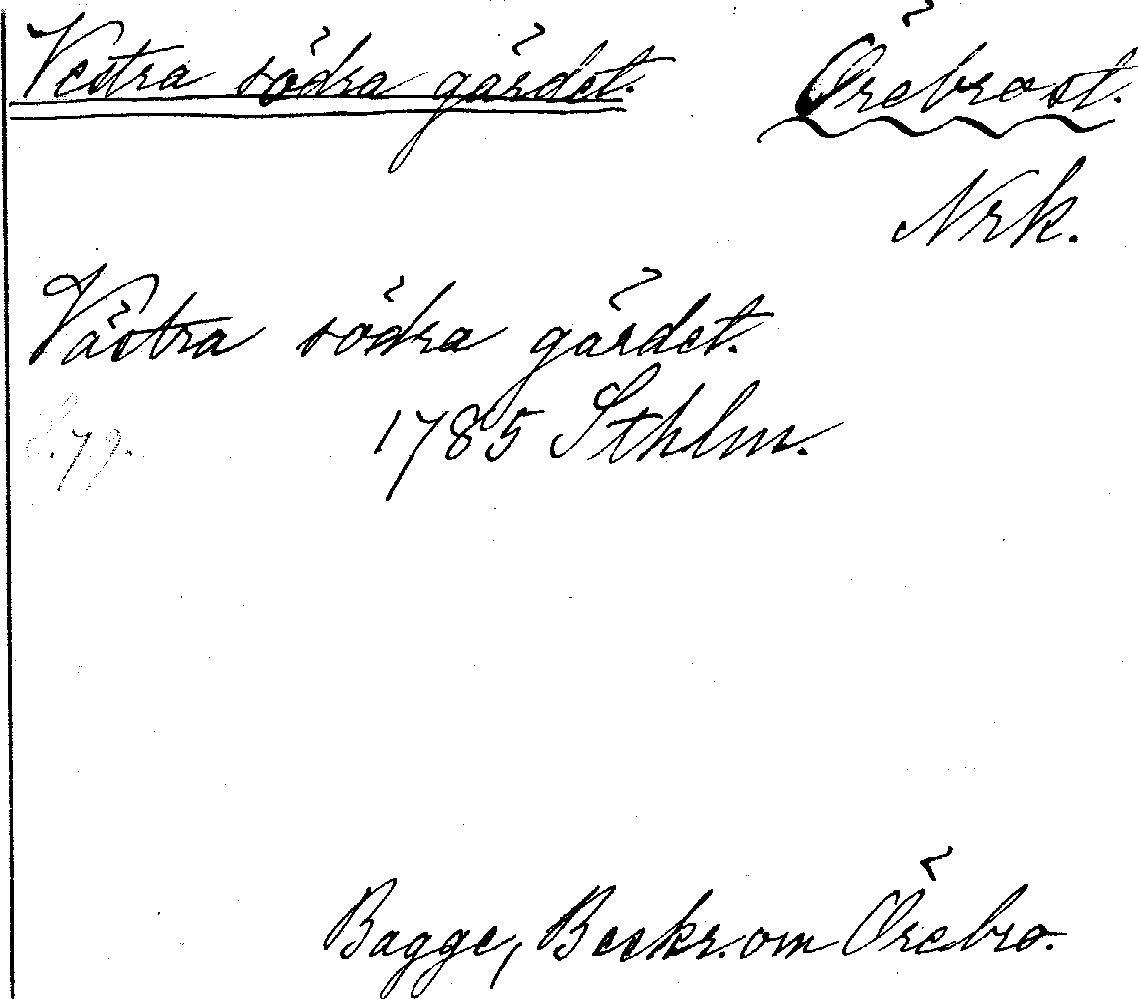 Vestra södra gärdet. Örebro st.
Nrk.
Västra södra gärdet.
S. 79. 1785 Sthlm.
Bagge, Beskr. om Örebro.